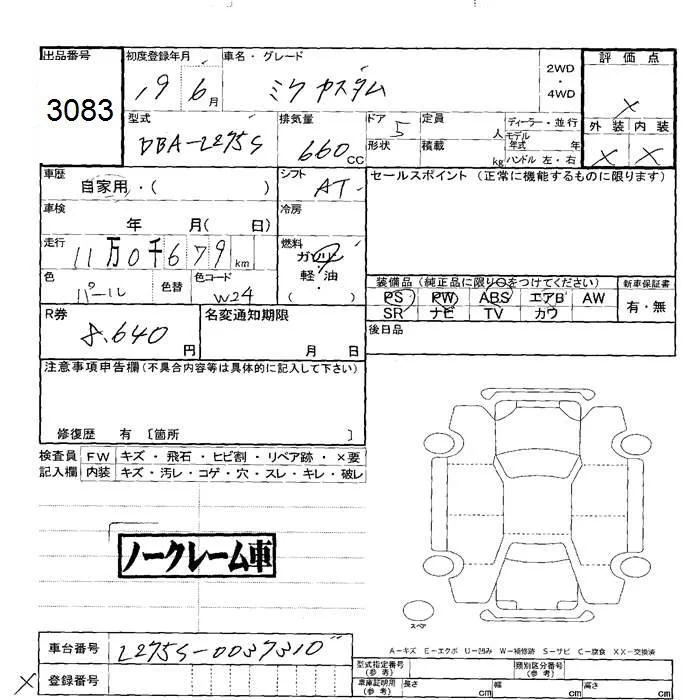 出品番号
3083
初度登録年月
19 6月
車名・グレード
ミラ カスタム
2WD
・
4WD
評価点
X
外装 内装
X X
型式
DBA-L275S
排気量
660 CC
ドア
5
形状
定員
人
積載
kg
ディーラー・並行
モデル年式 年
ハンドル 左・右
車歴
自家用・( )
シフト
AT
セールスポイント(正常に機能するものに限ります)
車検
年 月( 日)
冷房
走行
11万0千679km
燃料
ガソリン
・
軽油
( )
色
パール
色替
色コード
W24
装備品(純正品に限り○をつけてください)
PS PW ABS エアB AW
SR ナビ TV カワ
新車保証書
有・無
R券
8.640円
名変通知期限
月 日
後日品
注意事項申告欄(不具合内容等は具体的に記入して下さい)
修復歴 有 〔箇所 〕
検査員 FW キズ・飛石・ヒビ割・リペア跡・×要
記入欄 内装 キズ・汚レ・コゲ・穴・スレ・キレ・破レ
ノークレーム車
スペア
A-キズ E-エクボ U-凹み W-補修跡 S-サビ C-腐食 XX-交換済
車台番号
L275S-0037310
X 登録番号
型式指定番号
(参考)
類別区分番号
(参考)
車庫証明用
(参考)
長さ cm 幅 cm 高さ cm